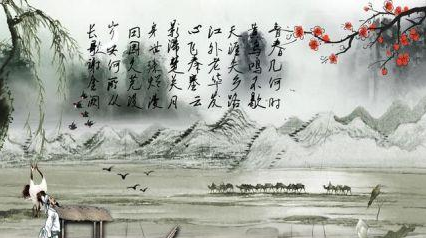 青春几何时
黄鸟鸣不歇
天涯失乡路
江外老华发
心飞秦塞云
影滞楚关月
身世殊烂漫
田园久芜没
岁晏何所从
长歌谢金阙